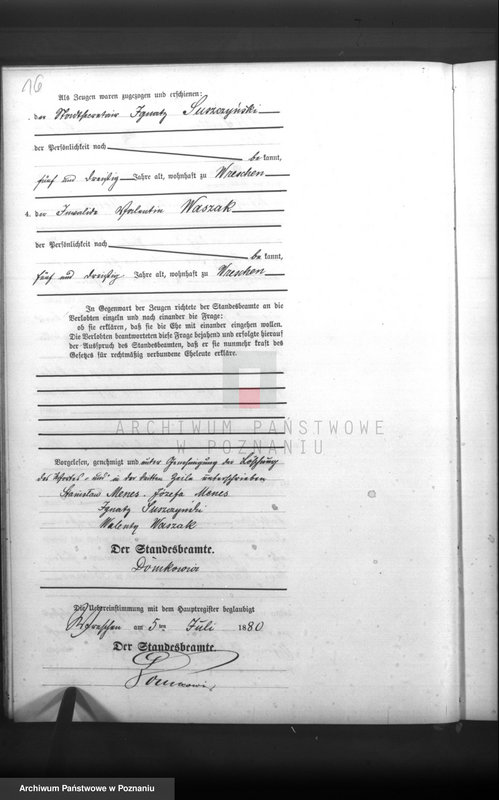 16
Als Zeugen waren zugezogen und erschienen:
der Stadtsecretair Ignatz Suszczyński
der Persönlichkeit nach
be kannt,
fünf und dreißig Jahre alt, wohnhaft zu Wreschen
4. der Invalide Valentin Waszak
der Persönlichkeit nach
be kannt,
fünf und dreißig Jahre alt, wohnhaft zu Wreschen
In Gegenwart der Zeugen richtete der Standesbeamte an die
Verlobten einzeln und nach einander die Frage:
ob sie erklären, daß sie die Ehe mit einander eingehen wollen.
Die Verlobten beantworteten diese Frage bejahend und erfolgte hierauf
der Ausspruch des Standesbeamten, daß er sie nunmehr kraft des
Gesetzes für rechtmäßig verbundene Eheleute erkläre.
ARCHIWUM PAŃSTWOWE
W POZNANIU
Vorgelesen, genehmigt und unter Genehmigung der Löschung
des Wortes "und" in der dritten Zeile unterschrieben
Stanisław Menes. Józefa Menes
Ignatz Suszczynski
Walenty Waszak
Der Standesbeamte.
Dömkowicz
Die Uebereinstimmung mit dem Hauptregister beglaubigt
Wreschen am 5ten Juli 1880
Der Standesbeamte.
Archiwum Państwowe w Poznaniu